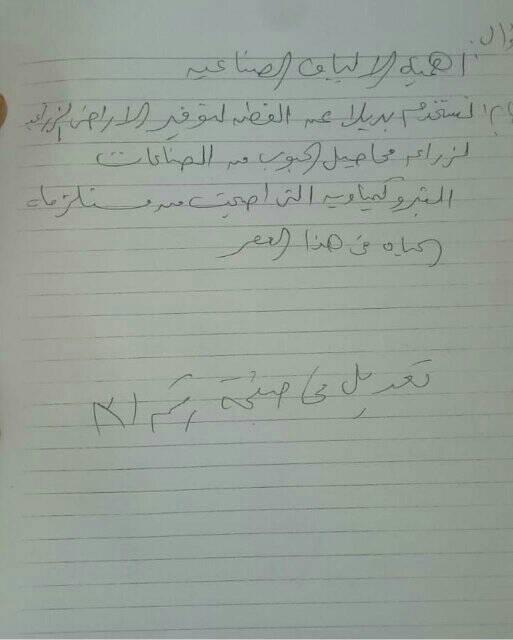 أهمية الالياف الصناعيه
تستخدم بديلا عن القطن لتوفير الاراضي الزراعيه
لزراعه محاصيل الحبوب من الصناعات
البتروكيماويه التي اصبحت من مستلزمات
الحياه في هذا العصر
تعديل في صفحة رقم